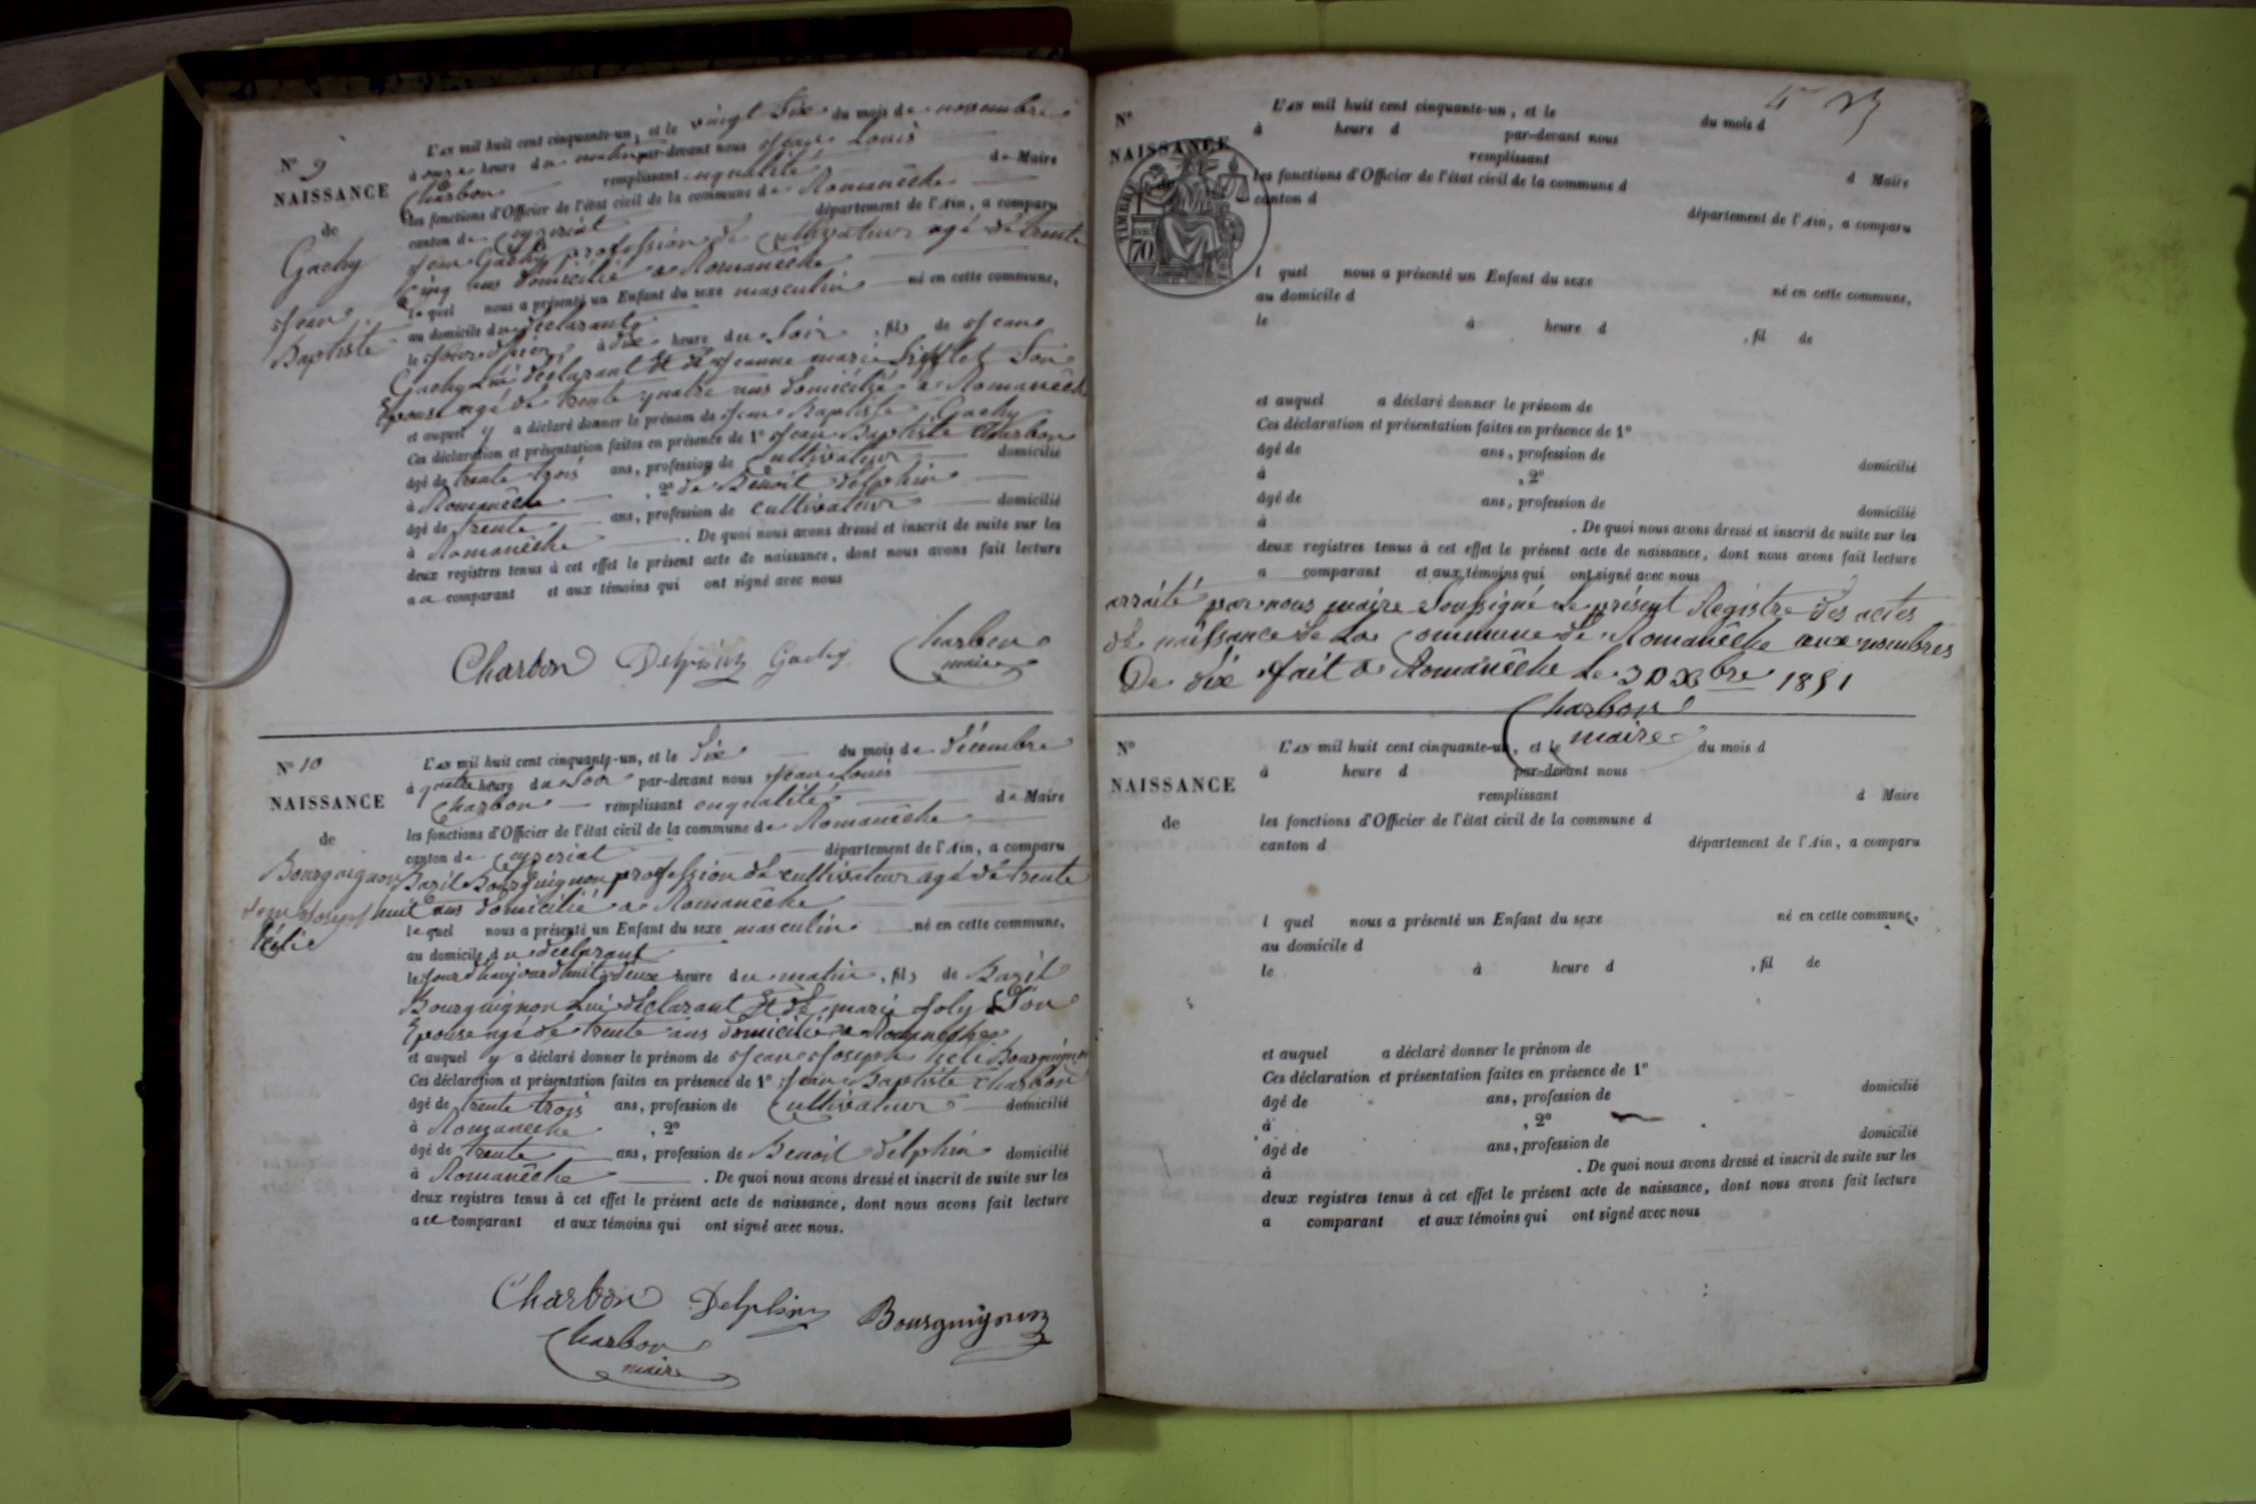 N° 9
NAISSANCE
de
Gachy
Jean
Baptiste
L'an mil huit cent cinquante-un, et le vingt Six du mois de novembre
à onze heure du matin par-devant nous Jean Louis
Charbon remplissant enqualité de Maire
les fonctions d'Officier de l'état civil de la commune de Romanêche
canton de Ceyzeriat département de l'Ain, a comparu
Jean Gachy profession de Cultivateur agé de trente
Cinq ans domicilié a Romanêche
lequel nous a présenté un Enfant du sexe masculin né en cette commune,
au domicile du déclarant
le jour d'hier à dix heure du Soir, fils de Jean
Gachy Lui déclarant Et de Jeanne marie Son
Epouse agé de trente quatre ans domicilié a Romanêche
et auquel y a déclaré donner le prénom de Jean Baptiste Gachy
Ces déclaration et présentation faites en présence de 1° Jean Baptiste Charbon
âgé de trente trois ans, profession de Cultivateur domicilié
à Romanêche, 2° de Benoit delphin
âgé de trente ans, profession de cultivateur domicilié
à Romanêche. De quoi nous avons dressé et inscrit de suite sur les
deux registres tenus à cet effet le présent acte de naissance, dont nous avons fait lecture
au comparant et aux témoins qui ont signé avec nous
Charbon Delphin Gachy Charbon
maire
N° 10
NAISSANCE
de
Bourguignon
Jean Joseph
Lélie
L'an mil huit cent cinquante-un, et le Dix du mois de décembre
à quatre heure du Soir par-devant nous Jean Louis
Charbon remplissant enqualité de Maire
les fonctions d'Officier de l'état civil de la commune de Romanêche
canton de Ceyzeriat département de l'Ain, a comparu
Bazil Bourguignon profession de cultivateur agé de trente
huit ans domicilié a Romanêche
lequel nous a présenté un Enfant du sexe masculin né en cette commune,
au domicile du déclarant
le jour d'haujourdhuit à deux heure du matin, fils de Bazil
Bourguignon Lui déclarant Et de marie Joly Son
Epouse agé de trente ans domicilié a Romanêche
et auquel y a déclaré donner le prénom de Jean Joseph Bourguignon
Ces déclaration et présentation faites en présence de 1° Jean Baptiste Charbon
âgé de trente trois ans, profession de Cultivateur domicilié
à Romanêche, 2°
âgé de trente ans, profession de Benoit delphin domicilié
à Romanêche. De quoi nous avons dressé et inscrit de suite sur les
deux registres tenus à cet effet le présent acte de naissance, dont nous avons fait lecture
au comparant et aux témoins qui ont signé avec nous.
Charbon Delphin Bourguignon
Charbon
maire
N°
NAISSANCE
TIMBRE
70
L'an mil huit cent cinquante-un, et le du mois d
à heure d par-devant nous
remplissant d Maire
les fonctions d'Officier de l'état civil de la commune d
canton d département de l'Ain, a comparu
l quel nous a présenté un Enfant du sexe né en cette commune,
au domicile d
le à heure d, fil de
et auquel a déclaré donner le prénom de
Ces déclaration et présentation faites en présence de 1°
âgé de ans, profession de domicilié
à, 2°
âgé de ans, profession de domicilié
à. De quoi nous avons dressé et inscrit de suite sur les
deux registres tenus à cet effet le présent acte de naissance, dont nous avons fait lecture
a comparant et aux témoins qui ont signé avec nous
arraité par nous maire Soussigné Le présent Registre des actes
de naissance de La Commune de Romanêche aux nombres
De dix fait a Romanêche Le 30 Xbre 1851
Charbon
maire
N°
NAISSANCE
de
L'an mil huit cent cinquante-un, et le du mois d
à heure d par-devant nous
remplissant d Maire
les fonctions d'Officier de l'état civil de la commune d
canton d département de l'Ain, a comparu
l quel nous a présenté un Enfant du sexe né en cette commune,
au domicile d
le à heure d, fil de
et auquel a déclaré donner le prénom de
Ces déclaration et présentation faites en présence de 1°
âgé de ans, profession de domicilié
à, 2°
âgé de ans, profession de domicilié
à. De quoi nous avons dressé et inscrit de suite sur les
deux registres tenus à cet effet le présent acte de naissance, dont nous avons fait lecture
a comparant et aux témoins qui ont signé avec nous